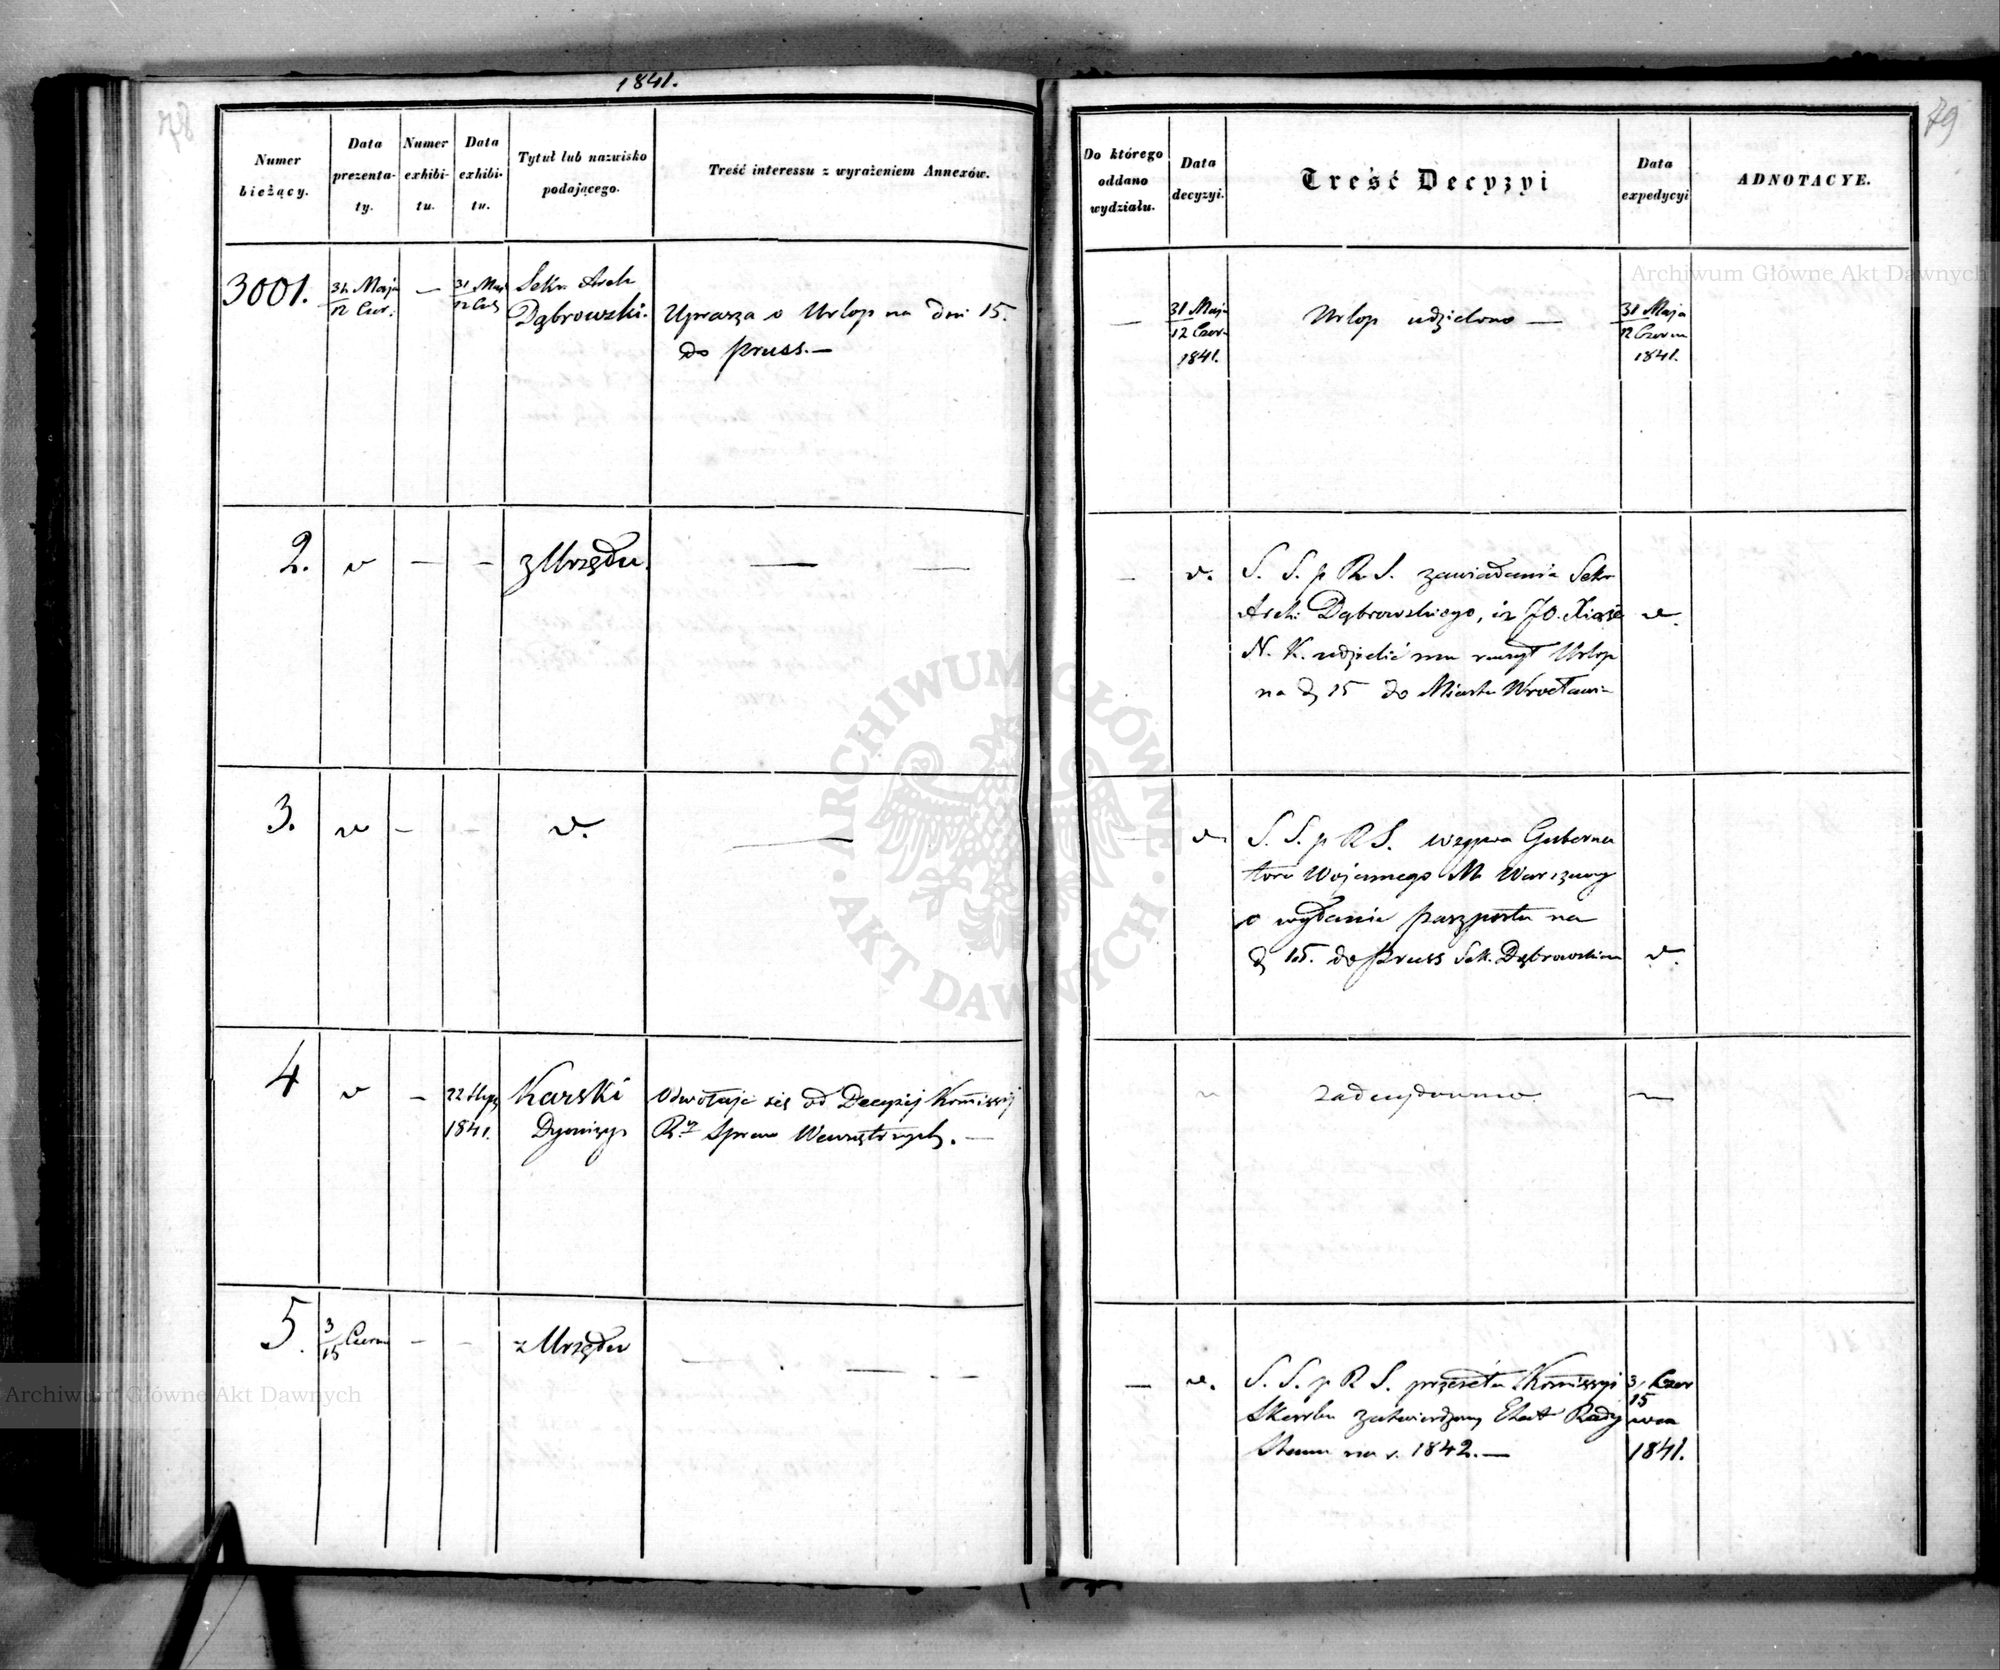 1841.
78
79
Numer bieżący.
Data prezenta-ty.
Numer exhibi-tu.
Data exhibi-tu.
Tytuł lub nazwisko podającego.
Treść interessu z wyrażeniem Annexów.
Do którego oddano wydziału.
Data decyzyi.
Treść Decyzyi
Data expedycyi
ADNOTACYE.
3001.
31 Maja
12 Czer.
—
31 Maj
12 Cz
Sekr. Arch
Dąbrowski.
Uprasza o Urlop na dni 15.
do Pruss.—
—
31 Maja
12 Czer.
1841.
Urlop udzielono —
31 Maja
12 Czerw
1841.
2.
v
—
—
z Urzędu.
—
—
—
v.
S. S. p R. S. zawiadamia Sekr
Arch: Dąbrowskiego, iż JO. Xiąże
N. K. udzielić mu raczył Urlop
na d 15 do Miasta Wrocławia
v.
3.
v
—
—
v.
—
—
v
S. S. p R S. wzywa Guberna
tora Wojennego M. Warszawy
o wydanie paszportu na
d 15. do Pruss Sek. Dąbrowskiem
v.
4
v
—
22
1841.
Karski
Dyonizy
Odwołuje się od Decyzij Kommissij
R. Spraw Wewnętrznych. —
zadecydowano.
—
5.
3
15 Czerw
—
—
z Urzędu
—
—
—
v.
S. S. p R S. przeseła Kommissyi
Skarbu zatwierdzony Etat Rady
Stanu na r. 1842.—
3 Czer
15 wca
1841.
Archiwum Główne Akt Dawnych
Archiwum Główne Akt Dawnych
ARCHIWUM GŁÓWNE · AKT DAWNYCH ·